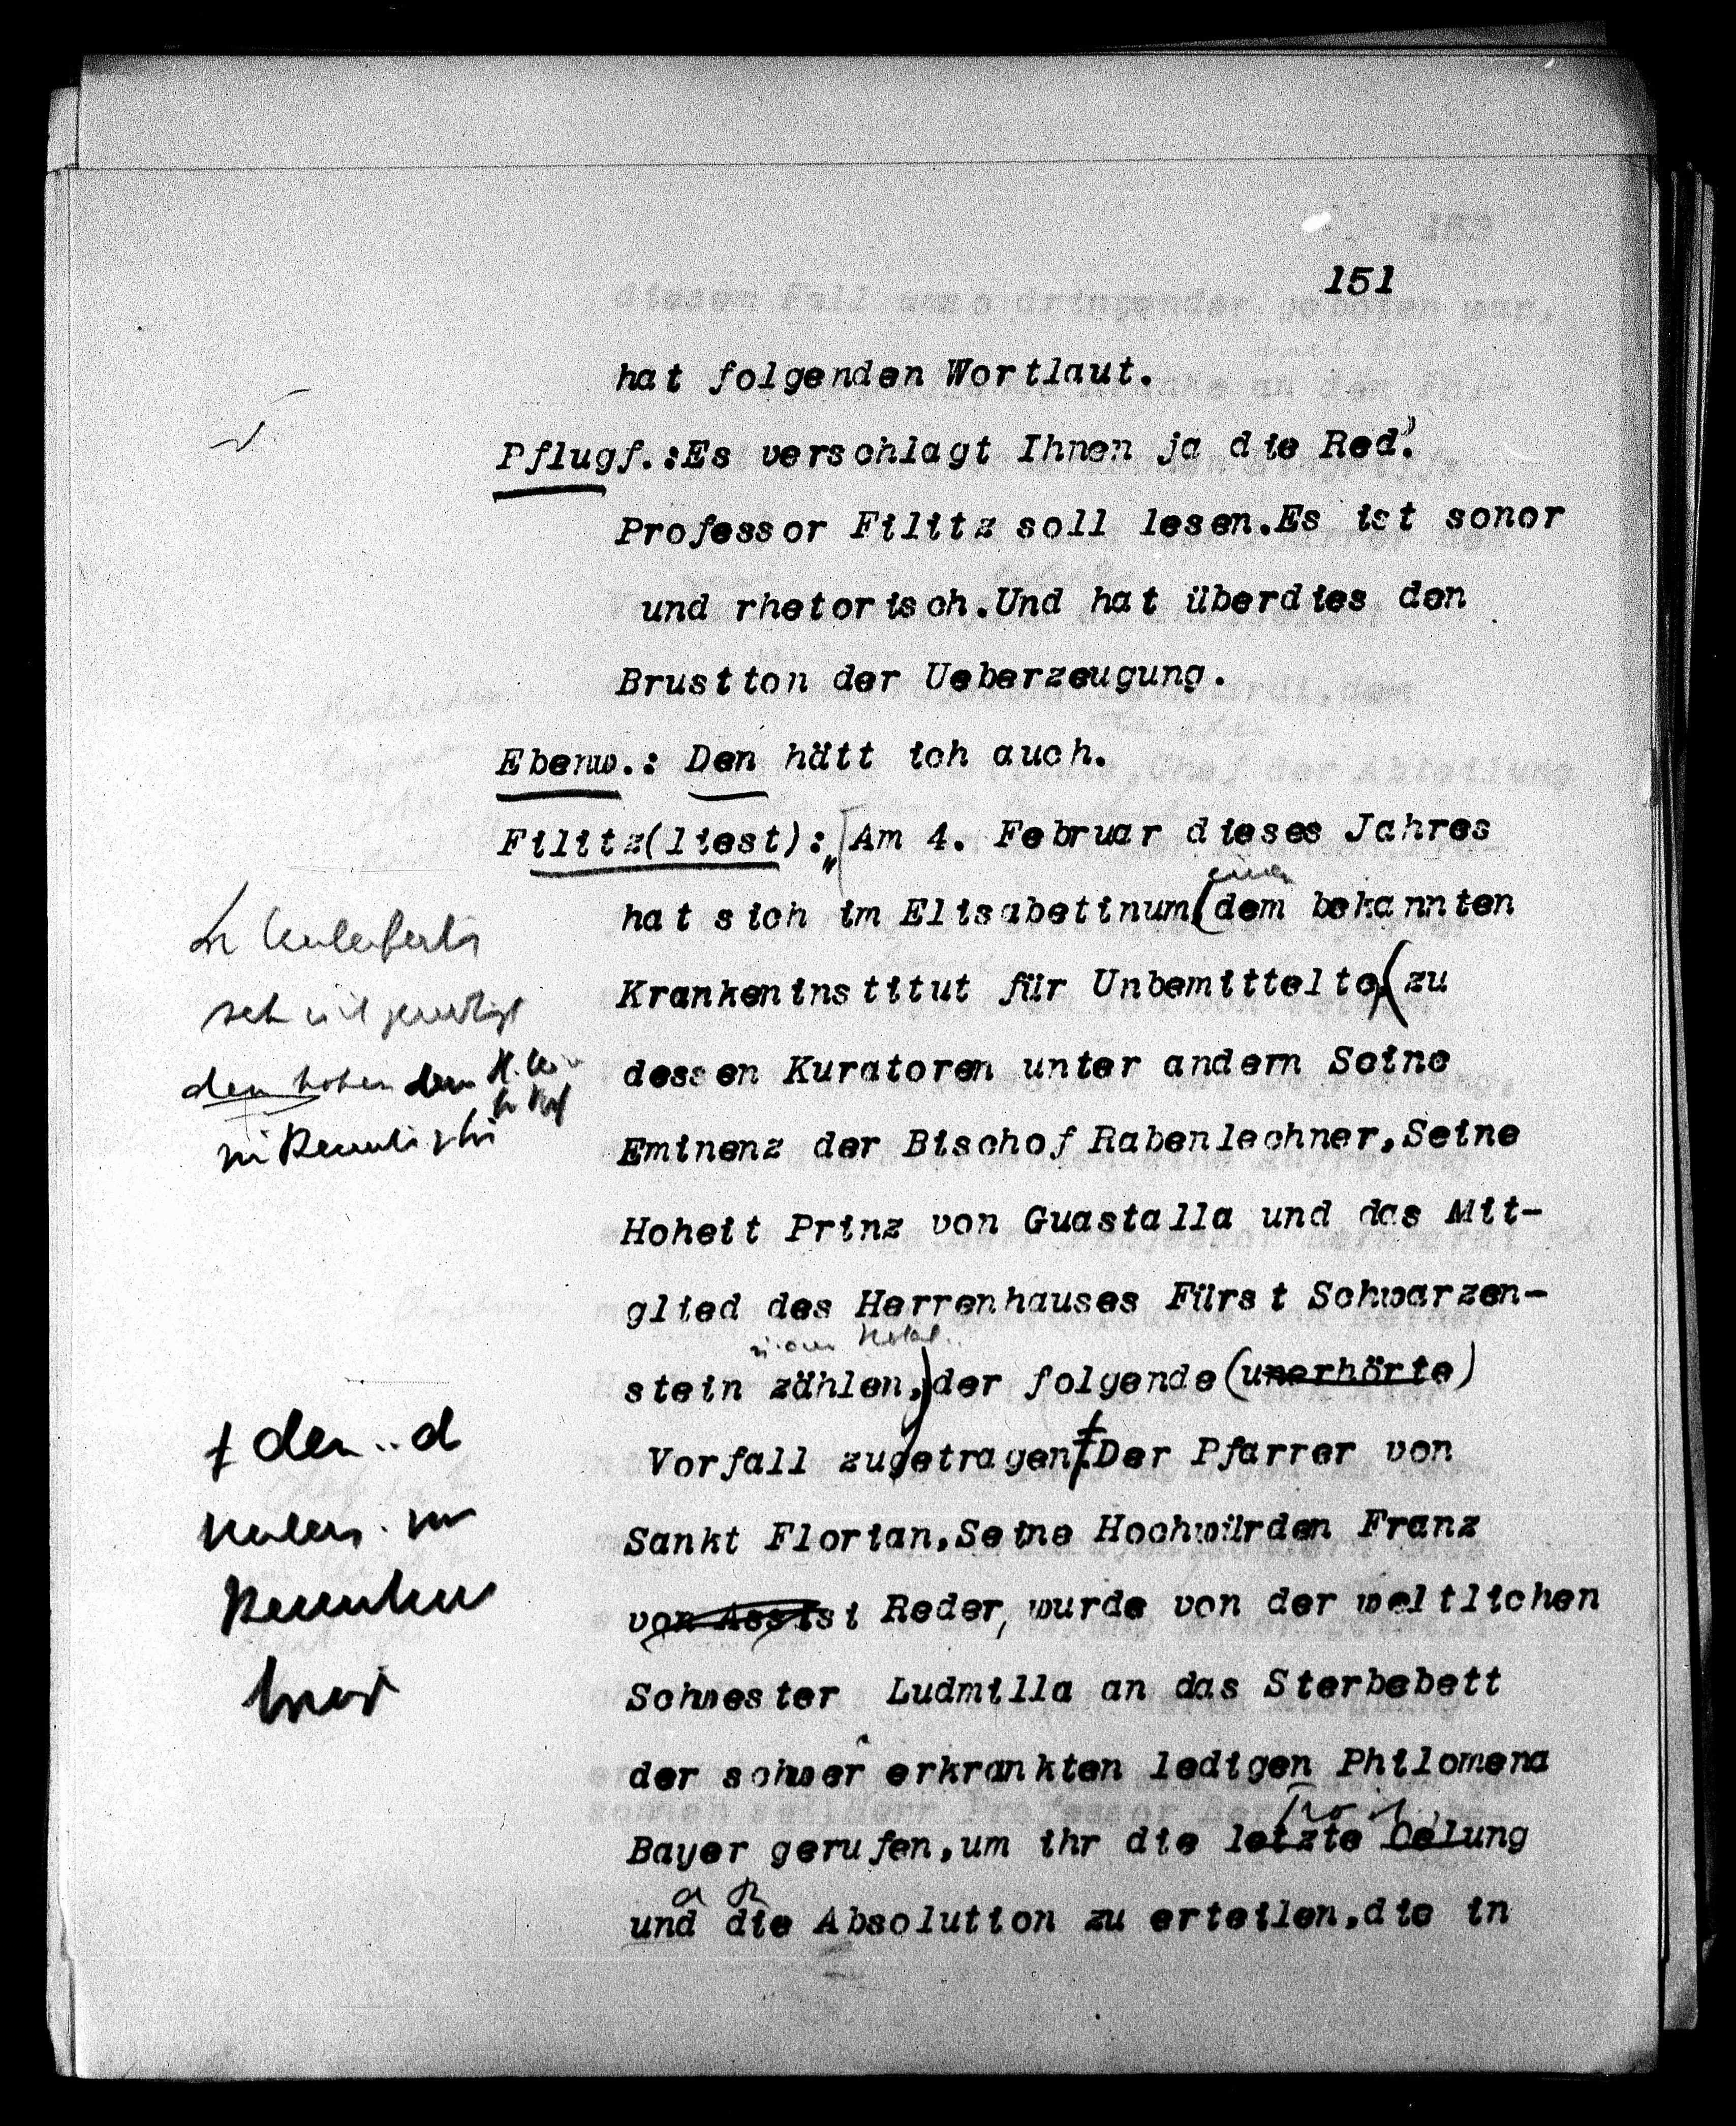 151
hat folgenden Wortlaut.
Pflugf.:Es verschlagt Ihnen ja die Red'.
Professor Filitz soll lesen.Es ist sonor
und rhetorisch.Und hat überdies den
Brustton der Ueberzeugung.
Ebenw.: Den hätt ich auch.
Filitz(liest):„Am 4. Februar dieses Jahres
hat sich im Elisabetinum(dem bekannten
Krankeninstitut für Unbemittelte,(zu
dessen Kuratoren unter andern Seine
Eminenz der Bischof Rabenlechner,Seine
Hoheit Prinz von Guastalla und das Mit-
glied des Herrenhauses Fürst Schwarzen-
stein zählen,)der folgende(unerhörte)
Vorfall zugetragen.Der Pfarrer von
Sankt Florian,Seine Hochwürden Franz
von Assisi Reder, wurde von der weltlichen
Schwester Ludmilla an das Sterbebett
der schwer erkrankten ledigen Philomena
Bayer gerufen,um ihr die letzte Oelung
und die Absolution zu erteilen,die in